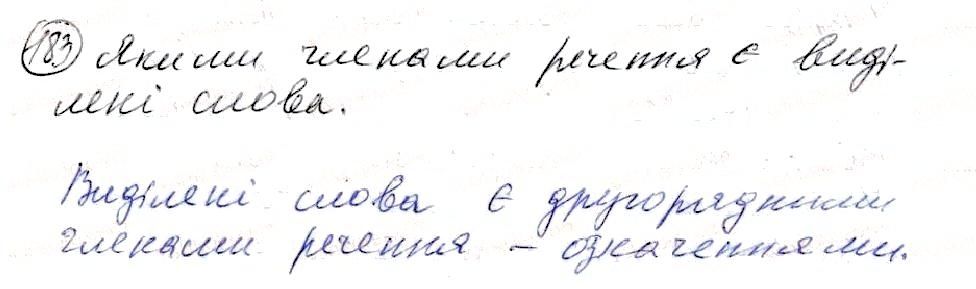 183 Якими членами речення є виді-
лені слова.
Виділені слова є другорядними
членами речення – означеннями.